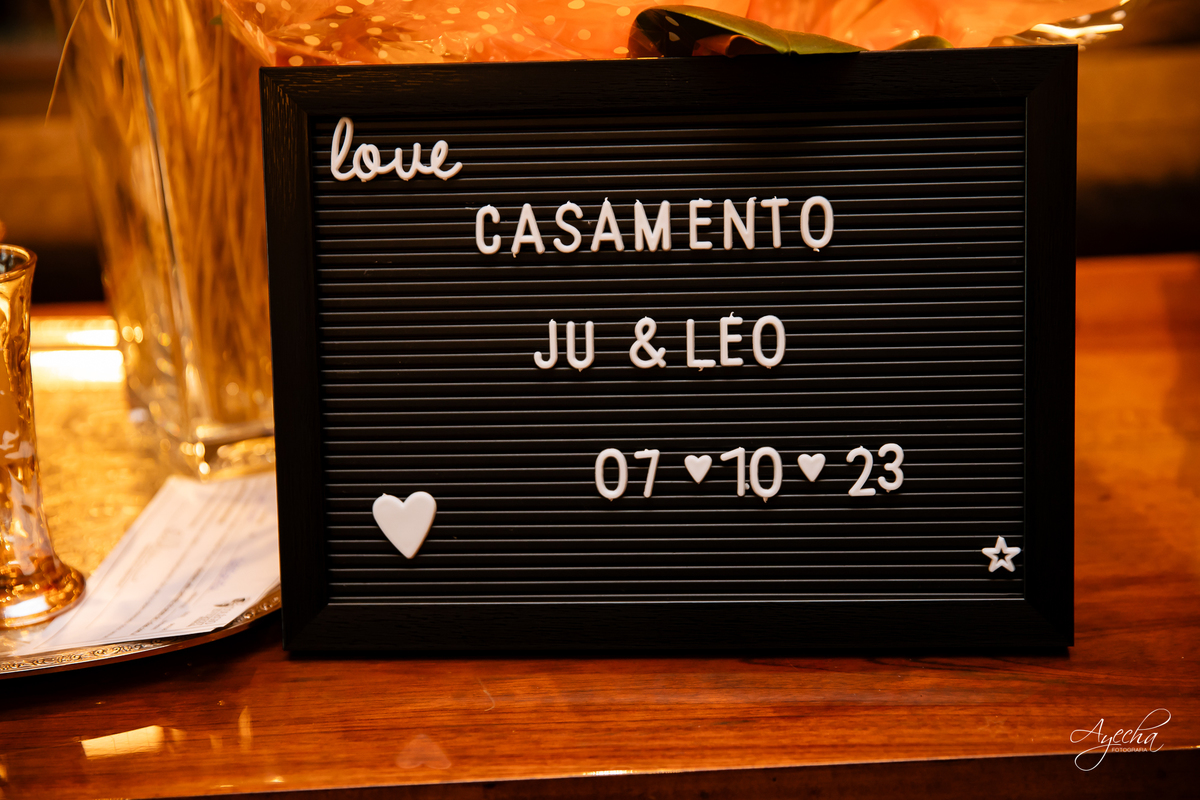 love
CASAMENTO
JU & LEO
07 ♥ 10 ♥ 23
Ayecha
FOTOGRAFIA